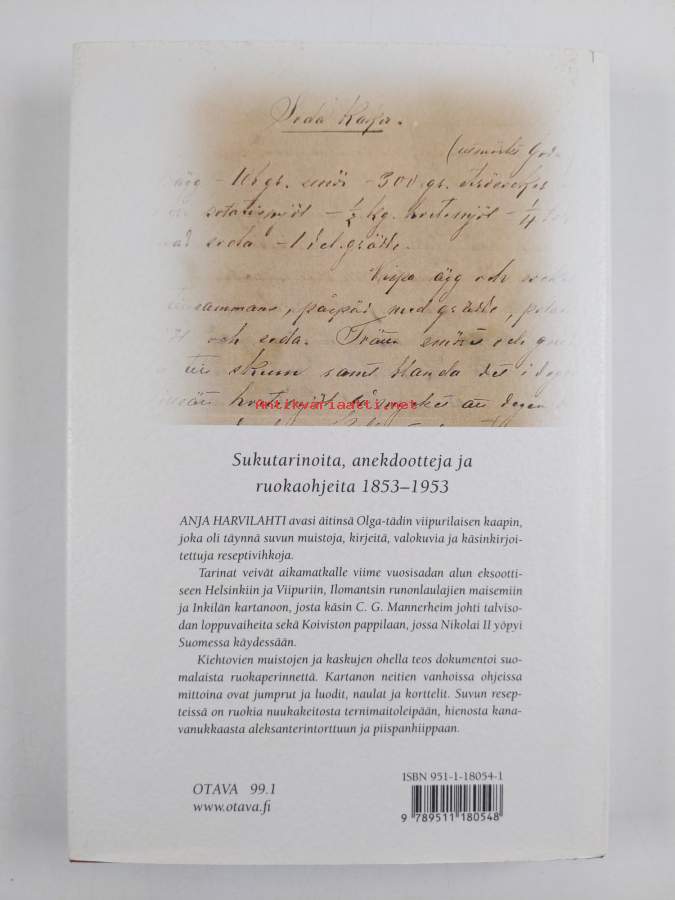 Soda Kakor.
ägg - 106 gr. smör - 300 gr. strösocker
potatismjöl - 1/2 kg. hvetemjöl - 1/4
soda - 1 del. grädde.
Vispa ägg och
sammans, påspäd med grädde, pota
och soda. smöret och
skum samt blanda det i
hvetemjöl
antikvariaatti.net
Sukutarinoita, anekdootteja ja
ruokaohjeita 1853–1953
ANJA HARVILAHTI avasi äitinsä Olga-tädin viipurilaisen kaapin,
joka oli täynnä suvun muistoja, kirjeitä, valokuvia ja käsinkirjoi-
tettuja reseptivihkoja.
Tarinat veivät aikamatkalle viime vuosisadan alun eksootti-
seen Helsinkiin ja Viipuriin, Ilomantsin runonlaulajien maisemiin
ja Inkilän kartanoon, josta käsin C. G. Mannerheim johti talviso-
dan loppuvaiheita sekä Koiviston pappilaan, jossa Nikolai II yöpyi
Suomessa käydessään.
Kiehtovien muistojen ja kaskujen ohella teos dokumentoi suo-
malaista ruokaperinnettä. Kartanon neitien vanhoissa ohjeissa
mittoina ovat jumprut ja luodit, naulat ja korttelit. Suvun resep-
teissä on ruokia nuukakeitosta ternimaitoleipään, hienosta kana-
vanukkaasta aleksanterintorttuun ja piispanhiippaan.
OTAVA 99.1
www.otava.fi
ISBN 951-1-18054-1
9 789511 180548